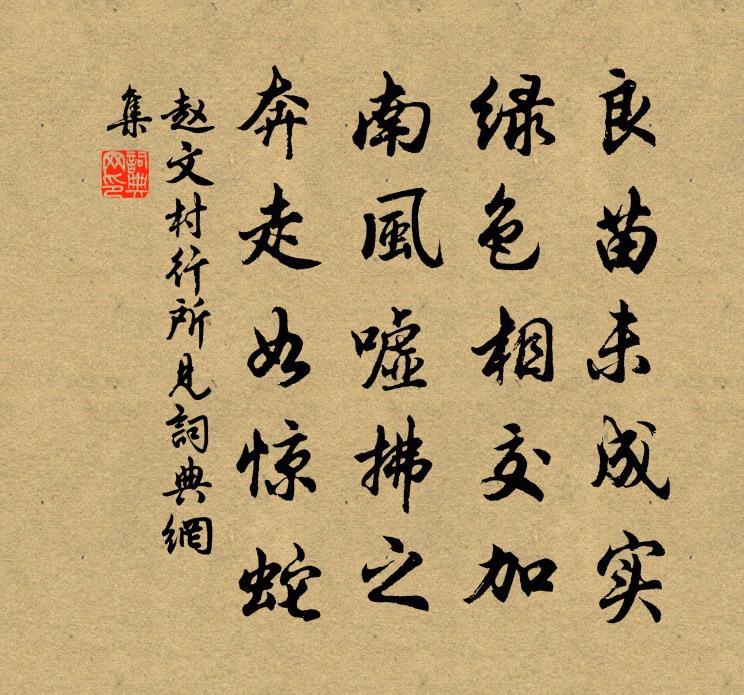 良苗未成实
绿色相交加
南風嘘拂之
奔走如惊蛇
赵文村行所见詞典網
集
詞典網印